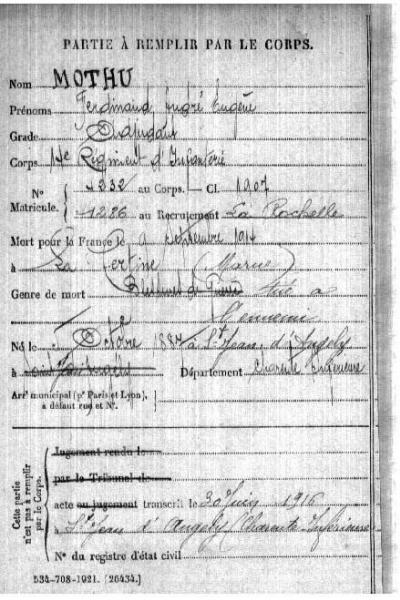 PARTIE À REMPLIR PAR LE CORPS.
Nom MOTHU
Prénoms Ferdinand André Eugène
Grade Adjudant
Corps Régiment d'Infanterie
N° Matricule. 4232 au Corps. — Cl. 1907
1286 au Recrutement La Rochelle
Mort pour la France le 9 septembre 1914
à La (Marne)
Genre de mort Blessures de Guerre tué à
l'ennemi
Né le Octobre 1887 à St Jean d'Angely
à Département Charente Inférieure
Arrt municipal (pr Paris et Lyon),
à défaut rue et N°.
Cette partie n'est pas à remplir par le Corps.
Jugement rendu le
par le Tribunal de
acte ou jugement transcrit le 30 Juin 1916
à St Jean d'Angely Charente-Inférieure
N° du registre d'état civil
534-708-1921. [26434.]